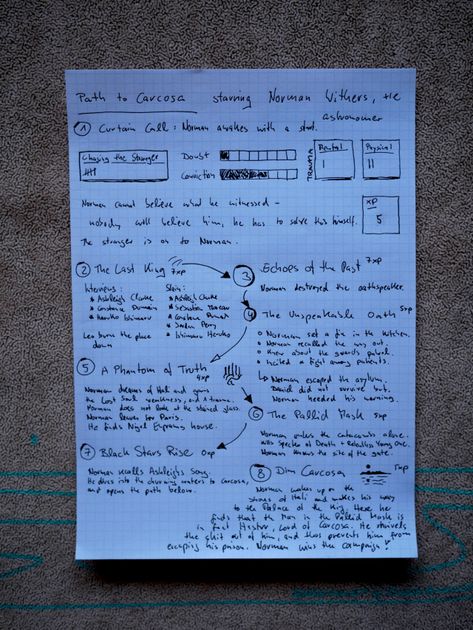 Path to Carcosa starring Norman Withers, the astronomer
1 Curtain Call: Norman awakes with a start.
Chasing the Stranger
Doubt
Conviction
TRAUMA
Mental
I
Physical
II
XP
5
Norman cannot believe what he witnessed -
nobody will believe him, he has to solve this himself.
The stranger is on to Norman.
2 The Last King 7xp
Interviews:
* Ashleigh Clarke
* Constance Dumaine
* Haruko Ishimaru
Slain:
* Ashleigh Clarke
* Sebastien Moreau
* Constance Dumaine
* Jordan Perry
* Ishimaru Haruko
Leo burns the place
down
3 Echoes of the Past 7xp
Norman destroyed the oathspeaker.
4 The Unspeakable Oath 5xp
Norman set a fire in the kitchen.
Norman recalled the way out.
Knew about the guards patrol.
Incited a fight among patients.
Norman escaped the asylum.
Daniel did not survive but
Norman heeded his warning.
5 A Phantom of Truth
4xp
Norman dreams of Hali and gains
the Lost Soul weakness, and 1 trauma.
Norman does not look at the stained glass.
Norman leaves for Paris.
He finds Nigel Engram's house.
6 The Pallid Mask 5xp
Norman enters the catacombs alone.
Kills Specter of Death + Relentless Young One.
Norman knows the site of the gate.
7 Black Stars Rise 0xp
Norman recalls Ashleigh's Song.
He dives into the churning waters to Carcosa,
and opens the path below.
8 Dim Carcosa
Norman wakes up on the
shores of Hali and makes his way
to the Palace of the King. Here he
finds that the Man in the Pallid Mask is
in fact Hastur, Lord of Carcosa. He shrivels
the shit out of him, and thus prevents him from
escaping his prison. Norman wins the campaign!